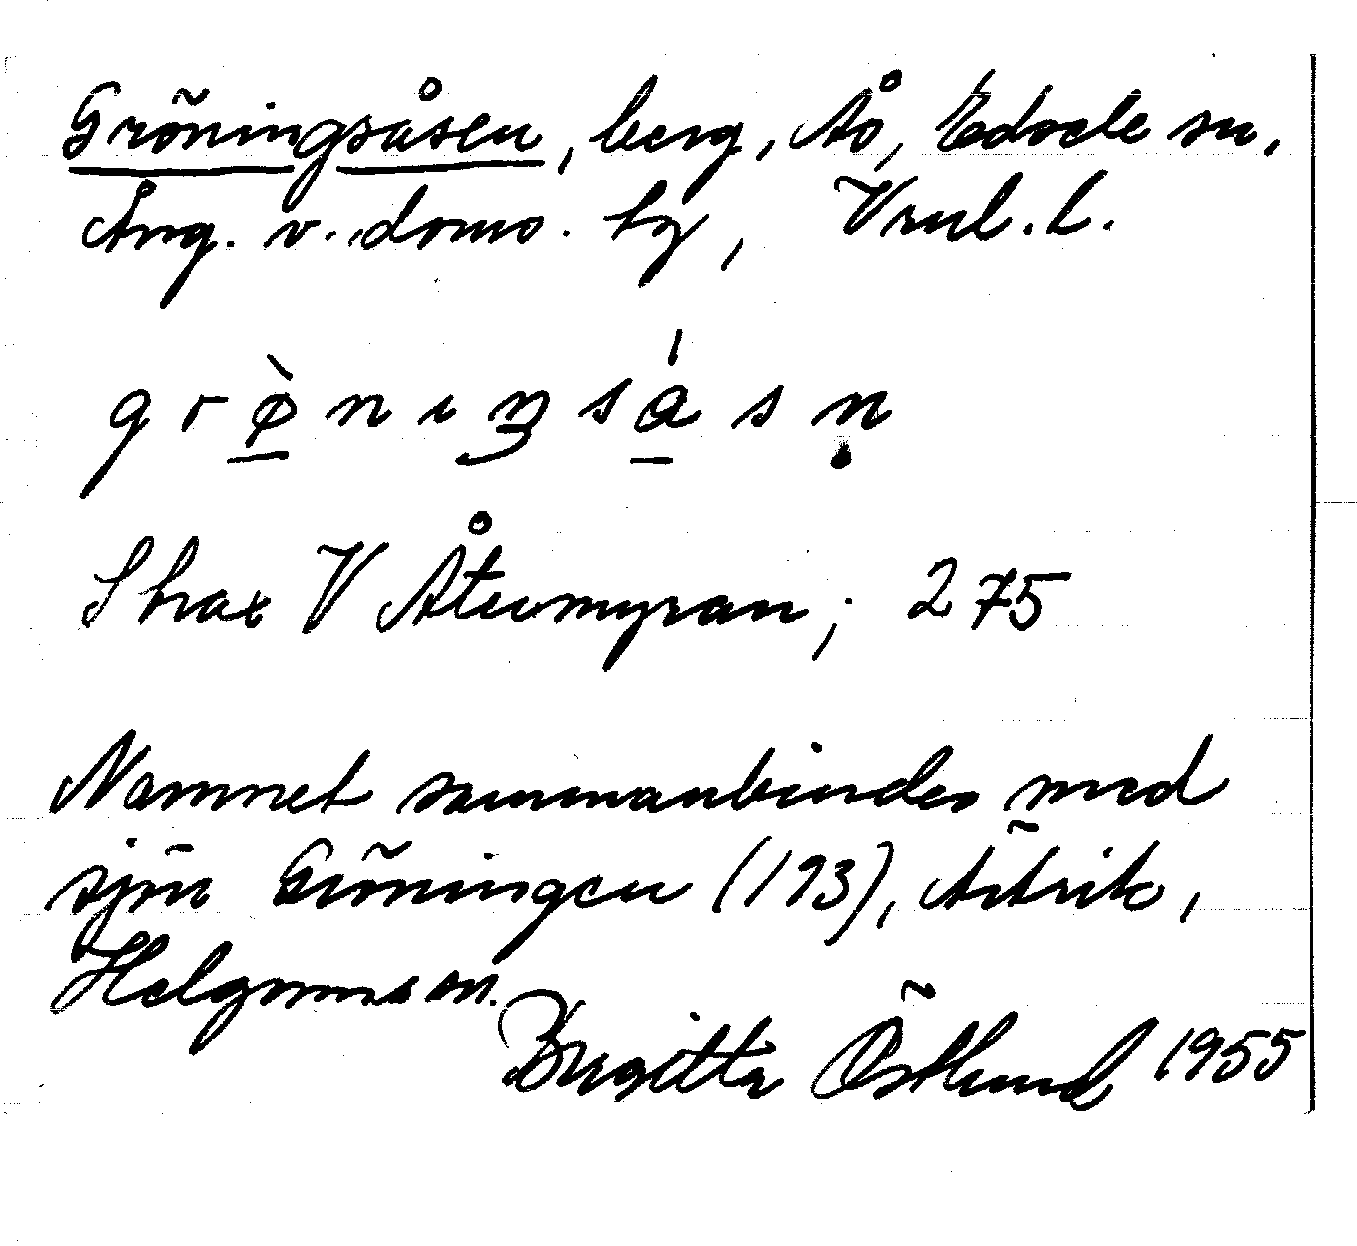 Gröningsåsen, berg, Ås, Edsele sn,
Ång. v. doms. by, Vrml. l.
grø̠̀nıŋsá̠sṇ
Strax V Åtevmyran; 275
Namnet sammanbindes med
sjön Gröningen (193), Artrik,
Helgums sn.
Birgitta Östlund 1955